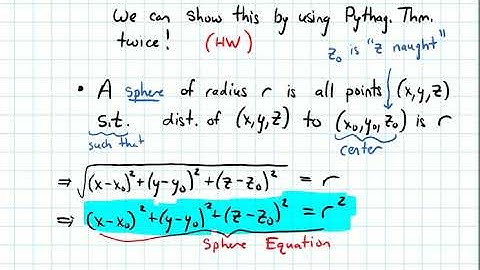 We can show this by using Pythag. Thm.
twice! (HW)
z₀ is "z naught"
• A sphere of radius r is all points (x,y,z)
s.t. dist. of (x,y,z) to (x₀,y₀,z₀) is r
such that
center
⇒ √(x-x₀)²+(y-y₀)²+(z-z₀)² = r
⇒ (x-x₀)²+(y-y₀)²+(z-z₀)² = r²
Sphere Equation